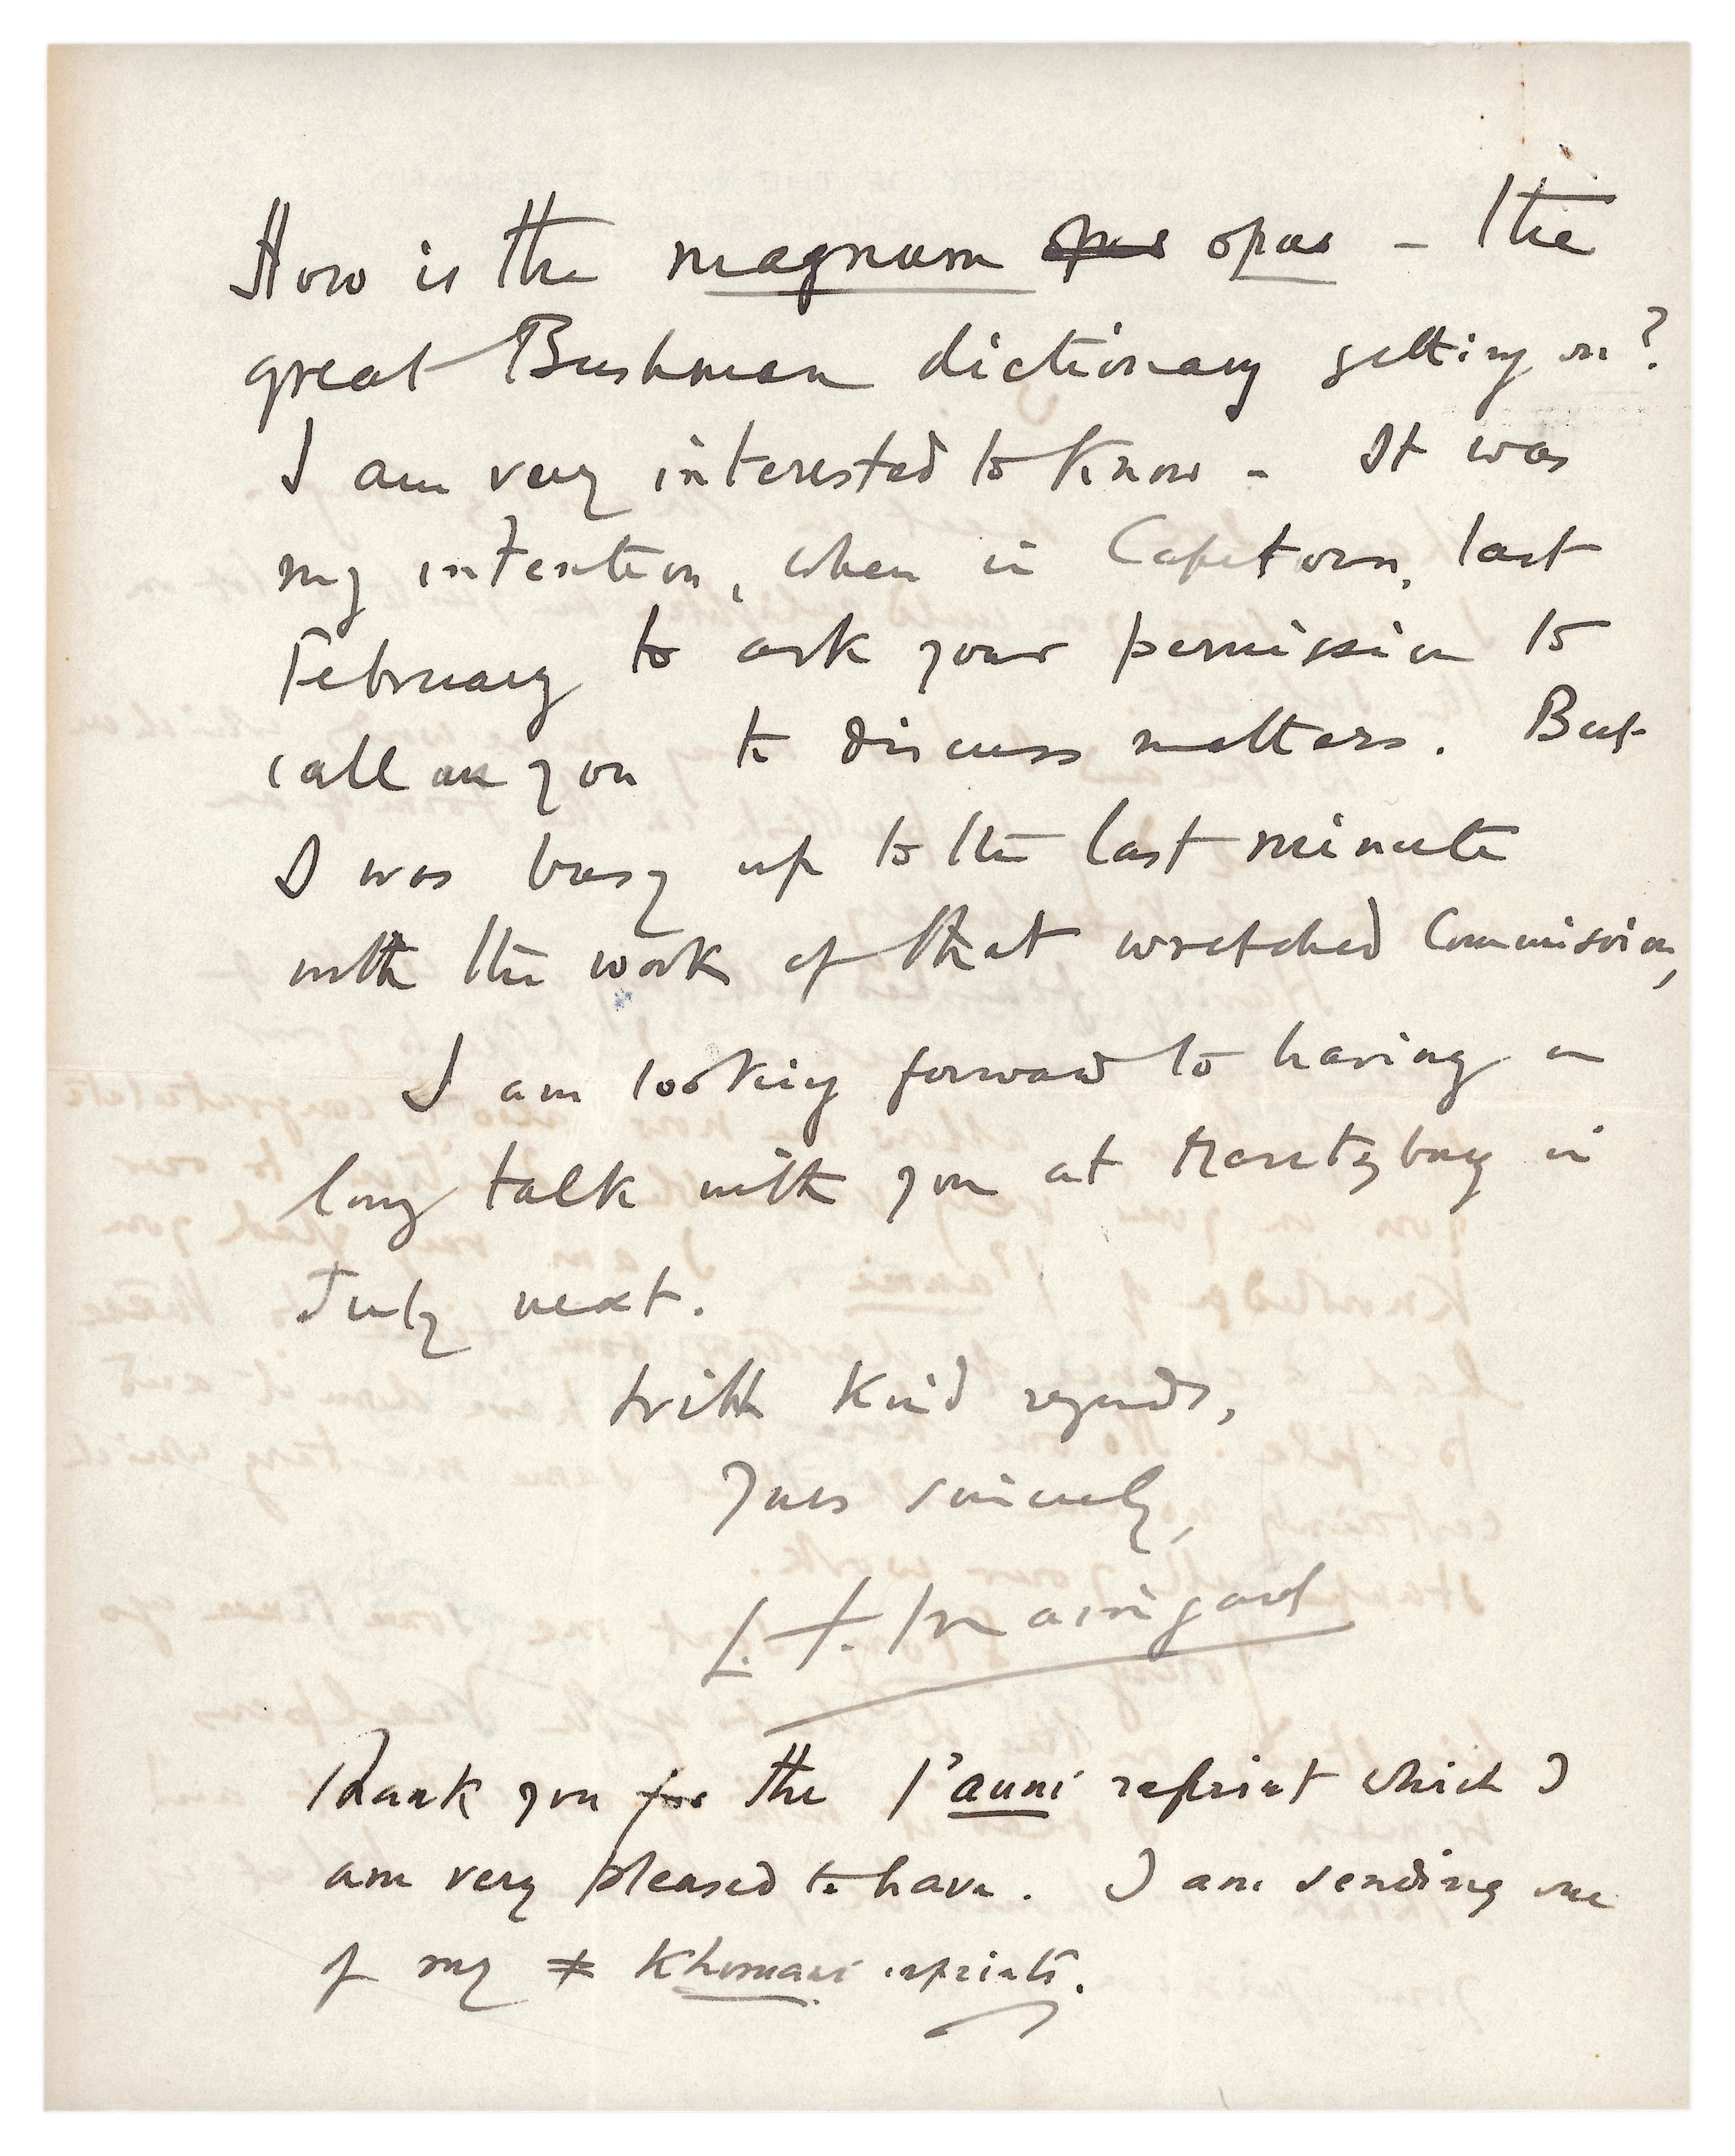 How is the magnum opus opus – the
great Bushman dictionary getting on?
I am very interested to know – It was
my intention, when in Capetown, last
February to ask your permission to
call on you to discuss matters. But
I was busy up to the last minute
with the work of that wretched Commission,
I am looking forward to having a
long talk with you at Maritzburg in
July next.
With kind regards,
Yours sincerely,
L. F. Maingard
Thank you for the /'auni reprint which I
am very pleased to have. I am sending one
of my ≠ Khomani reprints.